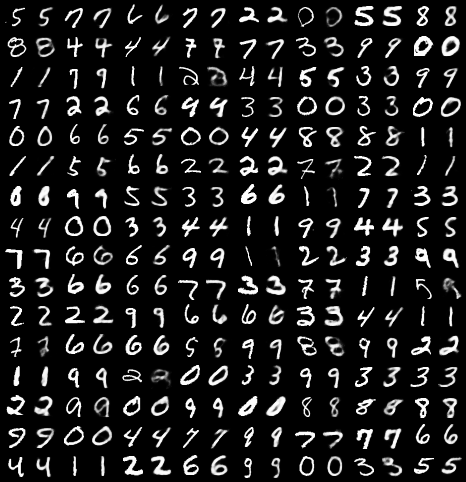 5 5 7 7 6 6 7 7 2 2 0 0 5 5 8 8
8 8 4 4 4 4 7 7 7 7 3 3 9 9 0 0
1 1 7 9 1 1 2 2 4 4 5 5 3 3 9 9
7 7 2 2 6 6 9 9 3 3 0 0 3 3 0 0
0 0 6 6 5 5 0 0 4 4 8 8 8 8 1 1
1 1 5 5 6 6 2 2 2 2 7 7 2 2 1 1
8 8 9 9 5 5 3 3 6 6 1 1 7 7 3 3
4 4 0 0 3 3 4 4 1 1 9 9 4 4 5 5
7 7 6 6 6 6 9 9 1 1 2 2 3 3 9 9
3 3 6 6 6 6 7 7 3 3 7 7 1 1 5
2 2 2 2 9 9 6 6 6 6 3 3 4 4 1 1
7 7 6 6 6 6 5 5 9 9 8 8 9 9 2 2
1 1 9 9 2 2 0 0 3 3 9 9 3 3 3 3
2 2 9 9 0 0 9 9 0 0 8 8 8 8 8 8
9 9 0 0 4 4 7 7 9 9 7 7 7 7 6 6
4 4 1 1 2 2 6 6 9 9 0 0 3 3 5 5